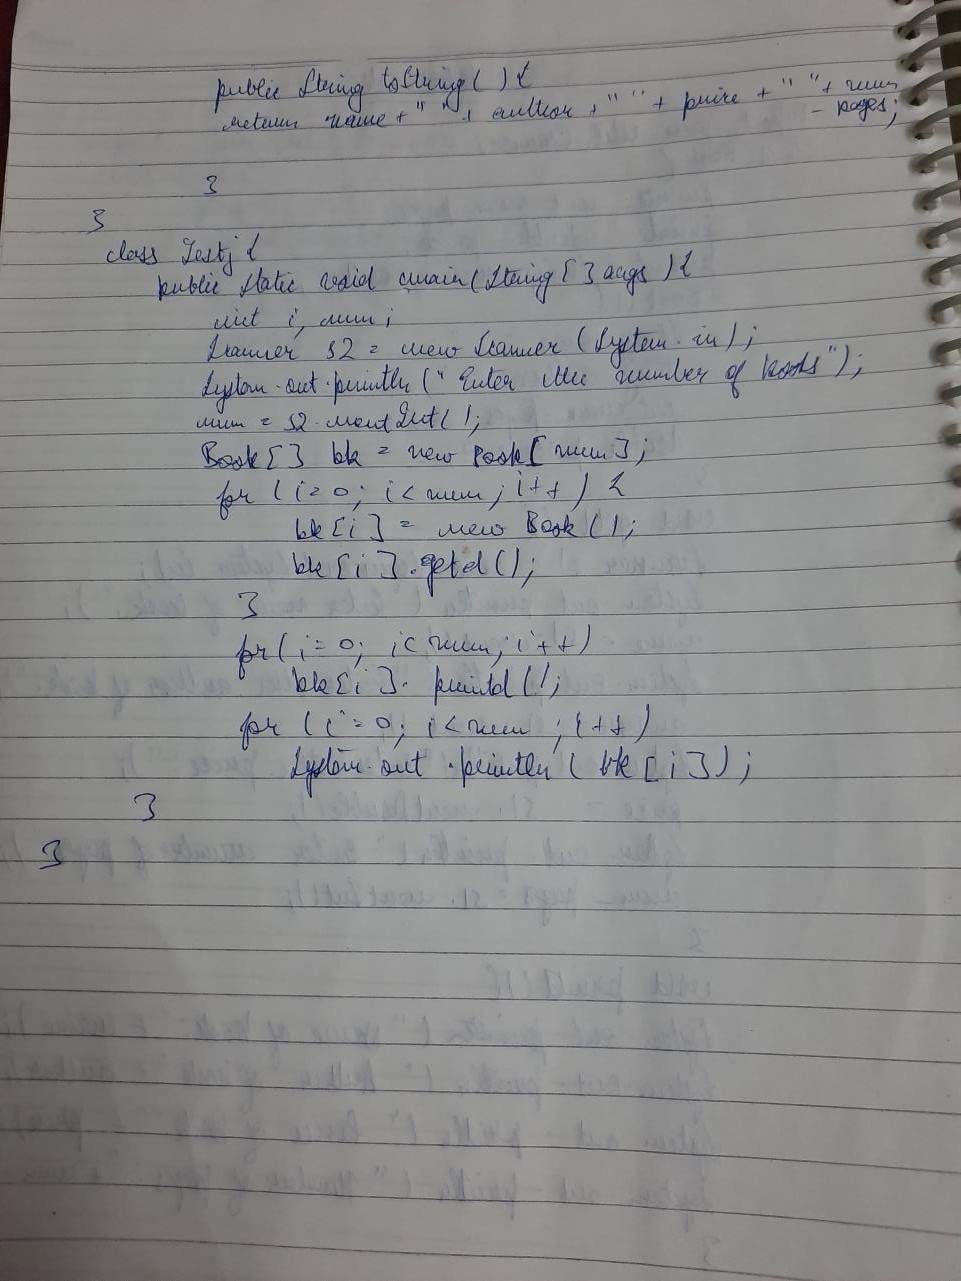 public String toString( ) {
return name + " " + author + " " + price + " " + num
- pages;
}
}
class Testj {
public static void main(String [ ] args ) {
int i, num ;
Scanner s2 = new Scanner (System.in) ;
System.out.println (" Enter the number of books");
num = s2.nextInt( );
Book [ ] bk = new Book [ num ] ;
for ( i=0; i<num ; i++ ) {
bk [i] = new Book ( );
bk [i].getd( );
}
for( i=0; i<num; i++)
bk [i]. printd ( );
for ( i=0; i<num ; i++)
System.out.println ( bk [i]) ;
}
}